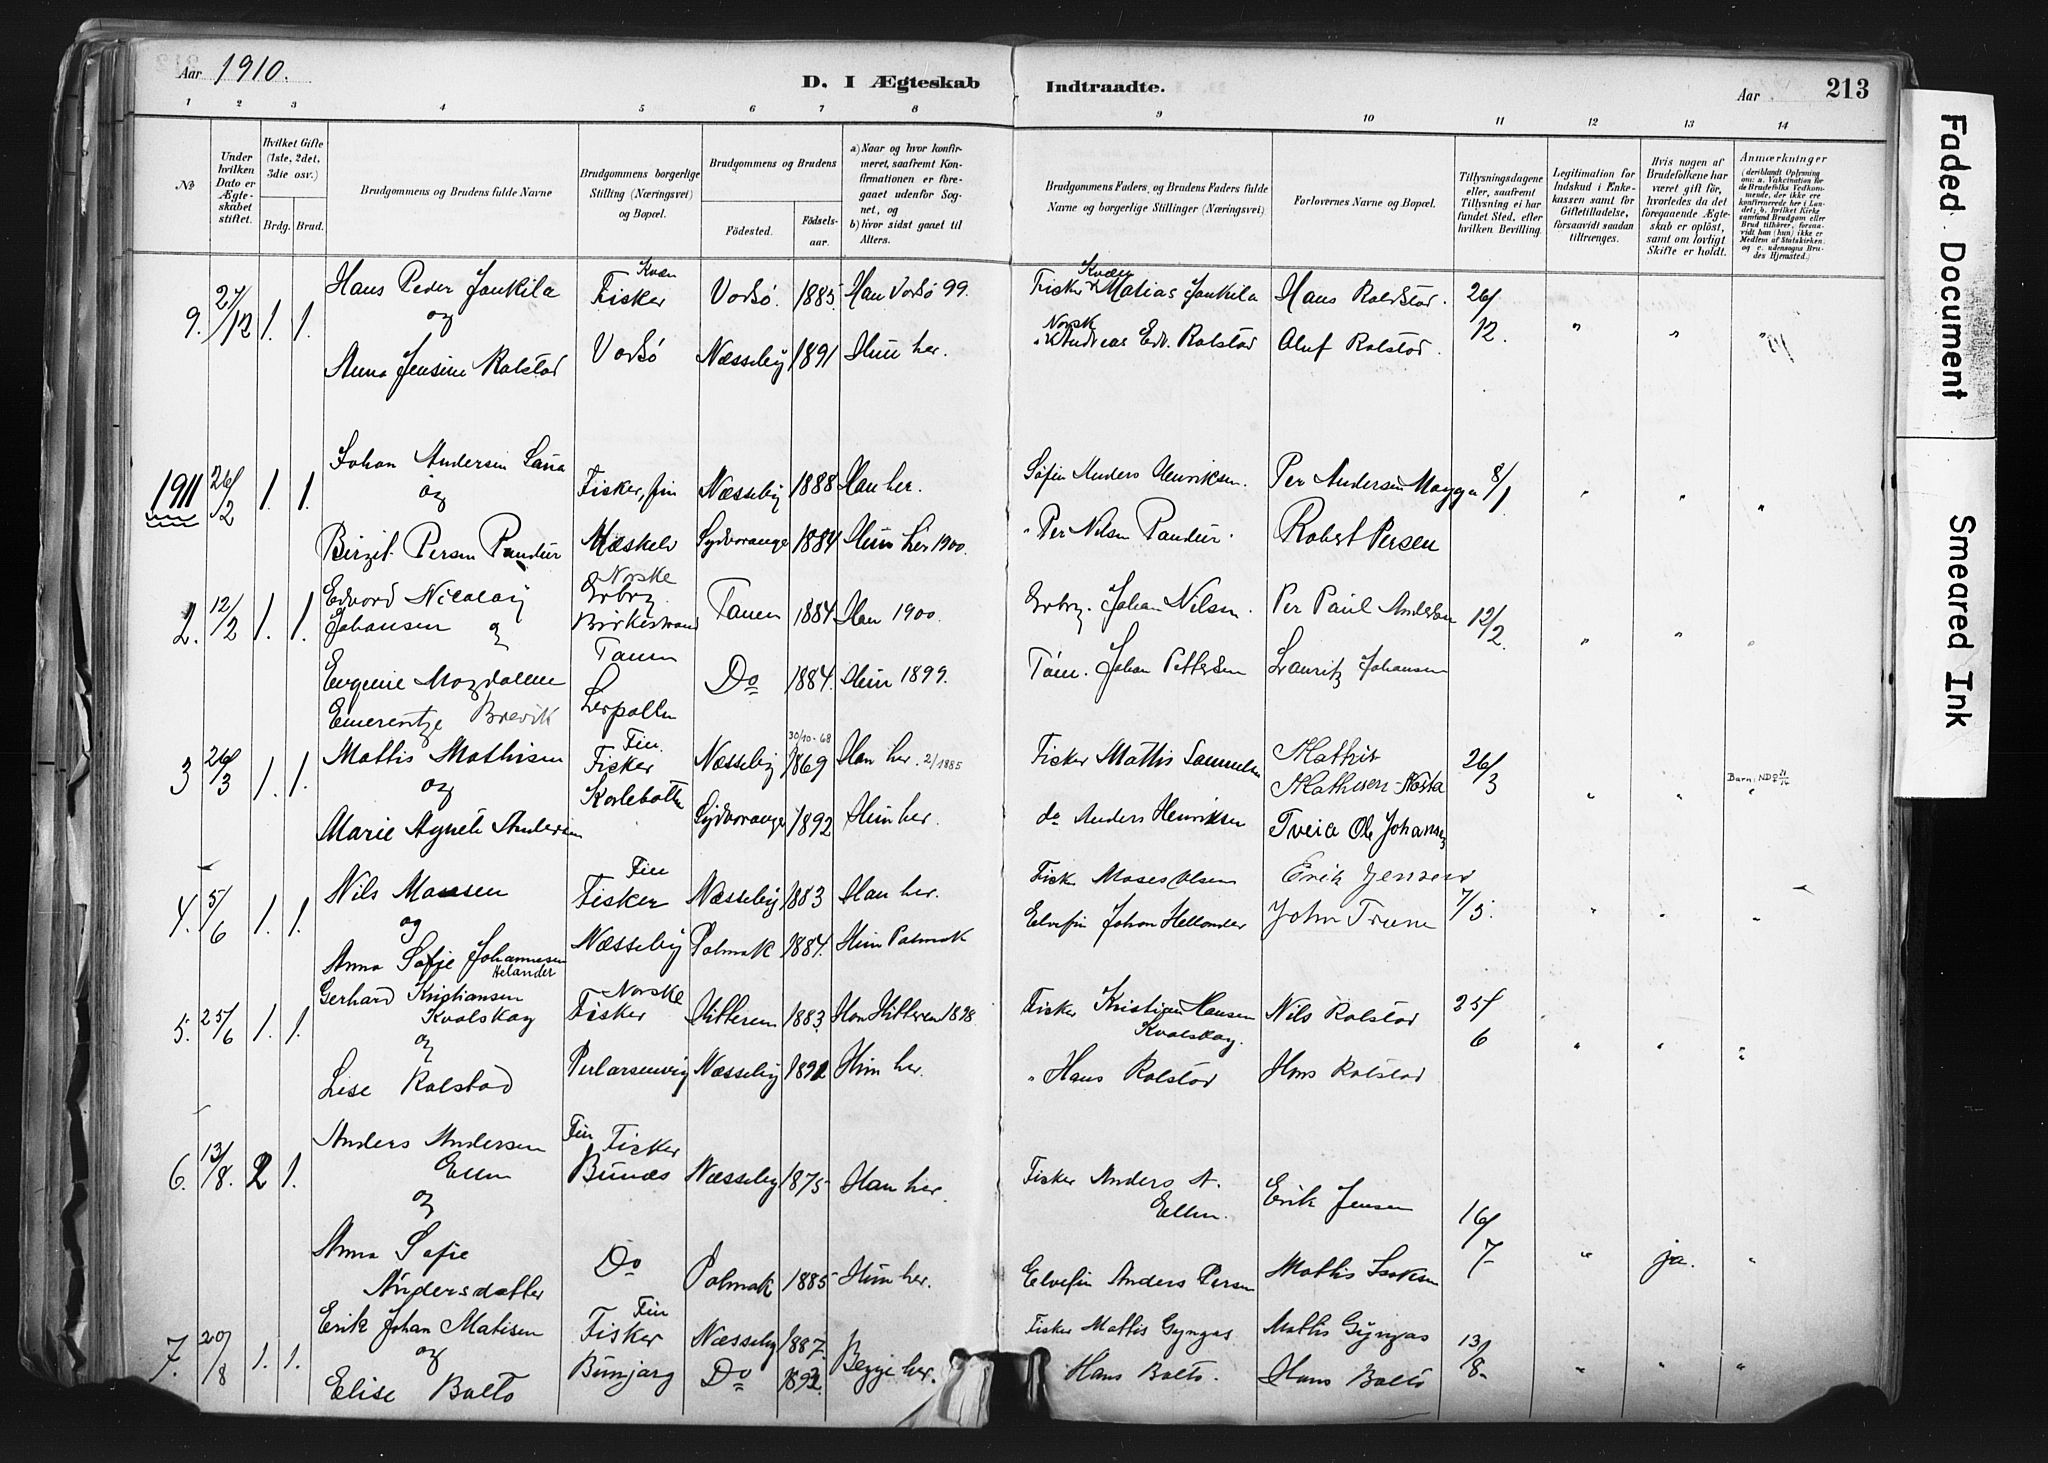 Aar 1910.
D. I Ægteskab Indtraadte.
Aar
213
1 2 3 4 5 6 7 8 9 10 11 12 13 14
No
Under hvilken Dato er Ægteskabet stiftet.
Hvilket Gifte (1ste, 2det, 3die osv.)
Brdg. Brud.
Brudgommens og Brudens fulde Navne
Brudgommens borgerlige Stilling (Næringsvei) og Bopæl.
Brudgommens og Brudens
Fødested.
Fødselsaar.
a) Naar og hvor konfirmeret, saafremt Konfirmationen er foregaaet udenfor Sognet, og
b) hvor sidst gaaet til Alters.
Brudgommens Faders, og Brudens Faders fulde Navne og borgerlige Stillinger (Næringsvei)
Forlovernes Navne og Bopæl.
Tillysningsdagene eller, saafremt Tillysning ei har fundet Sted, efter hvilken Bevilling.
Legitimation for Indskud i Enkekassen samt for Giftetilladelse, forsaavidt saadan tiltrænges.
Hvis nogen af Brudefolkene har været gift før, hvorledes da det foregaaende Ægteskab er opløst, samt om lovligt Skifte er holdt.
Anmærkninger (deriblandt Oplysning om: a. Vakcination for de Brudefolks Vedkommende, der ikke ere konfirmerede her i Landet; b. hvilket Kirkesamfund Brudgom eller Brud tilhører, forsaavidt han (hun) ikke er Medlem af Statskirken, og c. udensogns Brudes Hjemsted.)
9. 27/12 1. 1. Hans Peder Jankila Kvæn Fisker Vadsø. 1885. Han Vadsø 99. Fisker Kvæn Matias Jankila Hans Rolstad. 26/12. " " "
og
Anna Jensine Rolstad Vadsø Næsseby 1891 Hun her. " Norsk Andreas Edv. Rolstad Oluf Rolstad.
1911 26/2 1. 1. Johan Andersen fisker, fin Næsseby 1888 Han her. Søfin Anders Henriksen. Per Andersen Magga 8/1 " " "
og
Birgit Persen Pandur Mæskelv Sydvaranger 1884 Hun her 1900. " Per Nilsen Pandur. Robert Persen
2. 12/2 1. 1. Edvard Nicolay Norske Tanen 1884 Han 1900. Johan Nilsen. Per Paul Andersen 12/2. " " "
Johansen og Birkestrand
Tanen
Eugenie Magdalene Do 1884. Hun 1899. Johan Pettersen Lauritz Johansen
Emerentze Brevik
3 26/3 1. 1. Mattis Mathisen Fin. Fisker Næsseby 30/10-68 1869 Han her. 2/1885 Fisker Mattis Samuelsen Mathis Mathisen 26/3 " " Barn: "
og
Marie Agnete Andersen Sydvaranger 1892 Hun her. do Anders Henriksen Ole Johansen
4. 5/6 1. 1. Nils Mosesen Fin Fisker Næsseby 1883 Han her. Fisker Moses Olsen Erik Jensen 7/5. " " "
og
Anna Sofie Johannesen Helander Næsseby Polmak 1884. Hun Polmak Elvefin Johan Hellander John Trune
5. 25/6 1. 1. Gerhard Kristiansen Kvalskog Norske Fisker Hitteren 1883. Han Hitteren 1898 Fisker Kristian Hansen Kvalskog. Nils Rolstad 25/6 " " "
og
Lise Rolstad Perlarsenvig Næsseby 1891 Hun her. " Hans Rolstad Hans Rolstad
6. 13/8. 2 1. Anders Andersen Ellin Fin Fisker Bunæs Næsseby 1875 Han her. Fisker Anders A. Ellin. Erik Jensen 16/7 " ja. "
og
Anna Sofie Andersdatter Do Polmak 1885 Hun her. Elvefin Anders Persen Mattis Isaksen
7. 20/8 1. 1. Erik Johan Matisen Fin Fisker Næsseby 1887. Begge her. Fisker Mattis Gyngas Mattis Gyngas 13/8. " " "
og
Elise Balto Bunjarg Do 1892. Hans Balto. Hans Balto
Faded Document
Smeared Ink